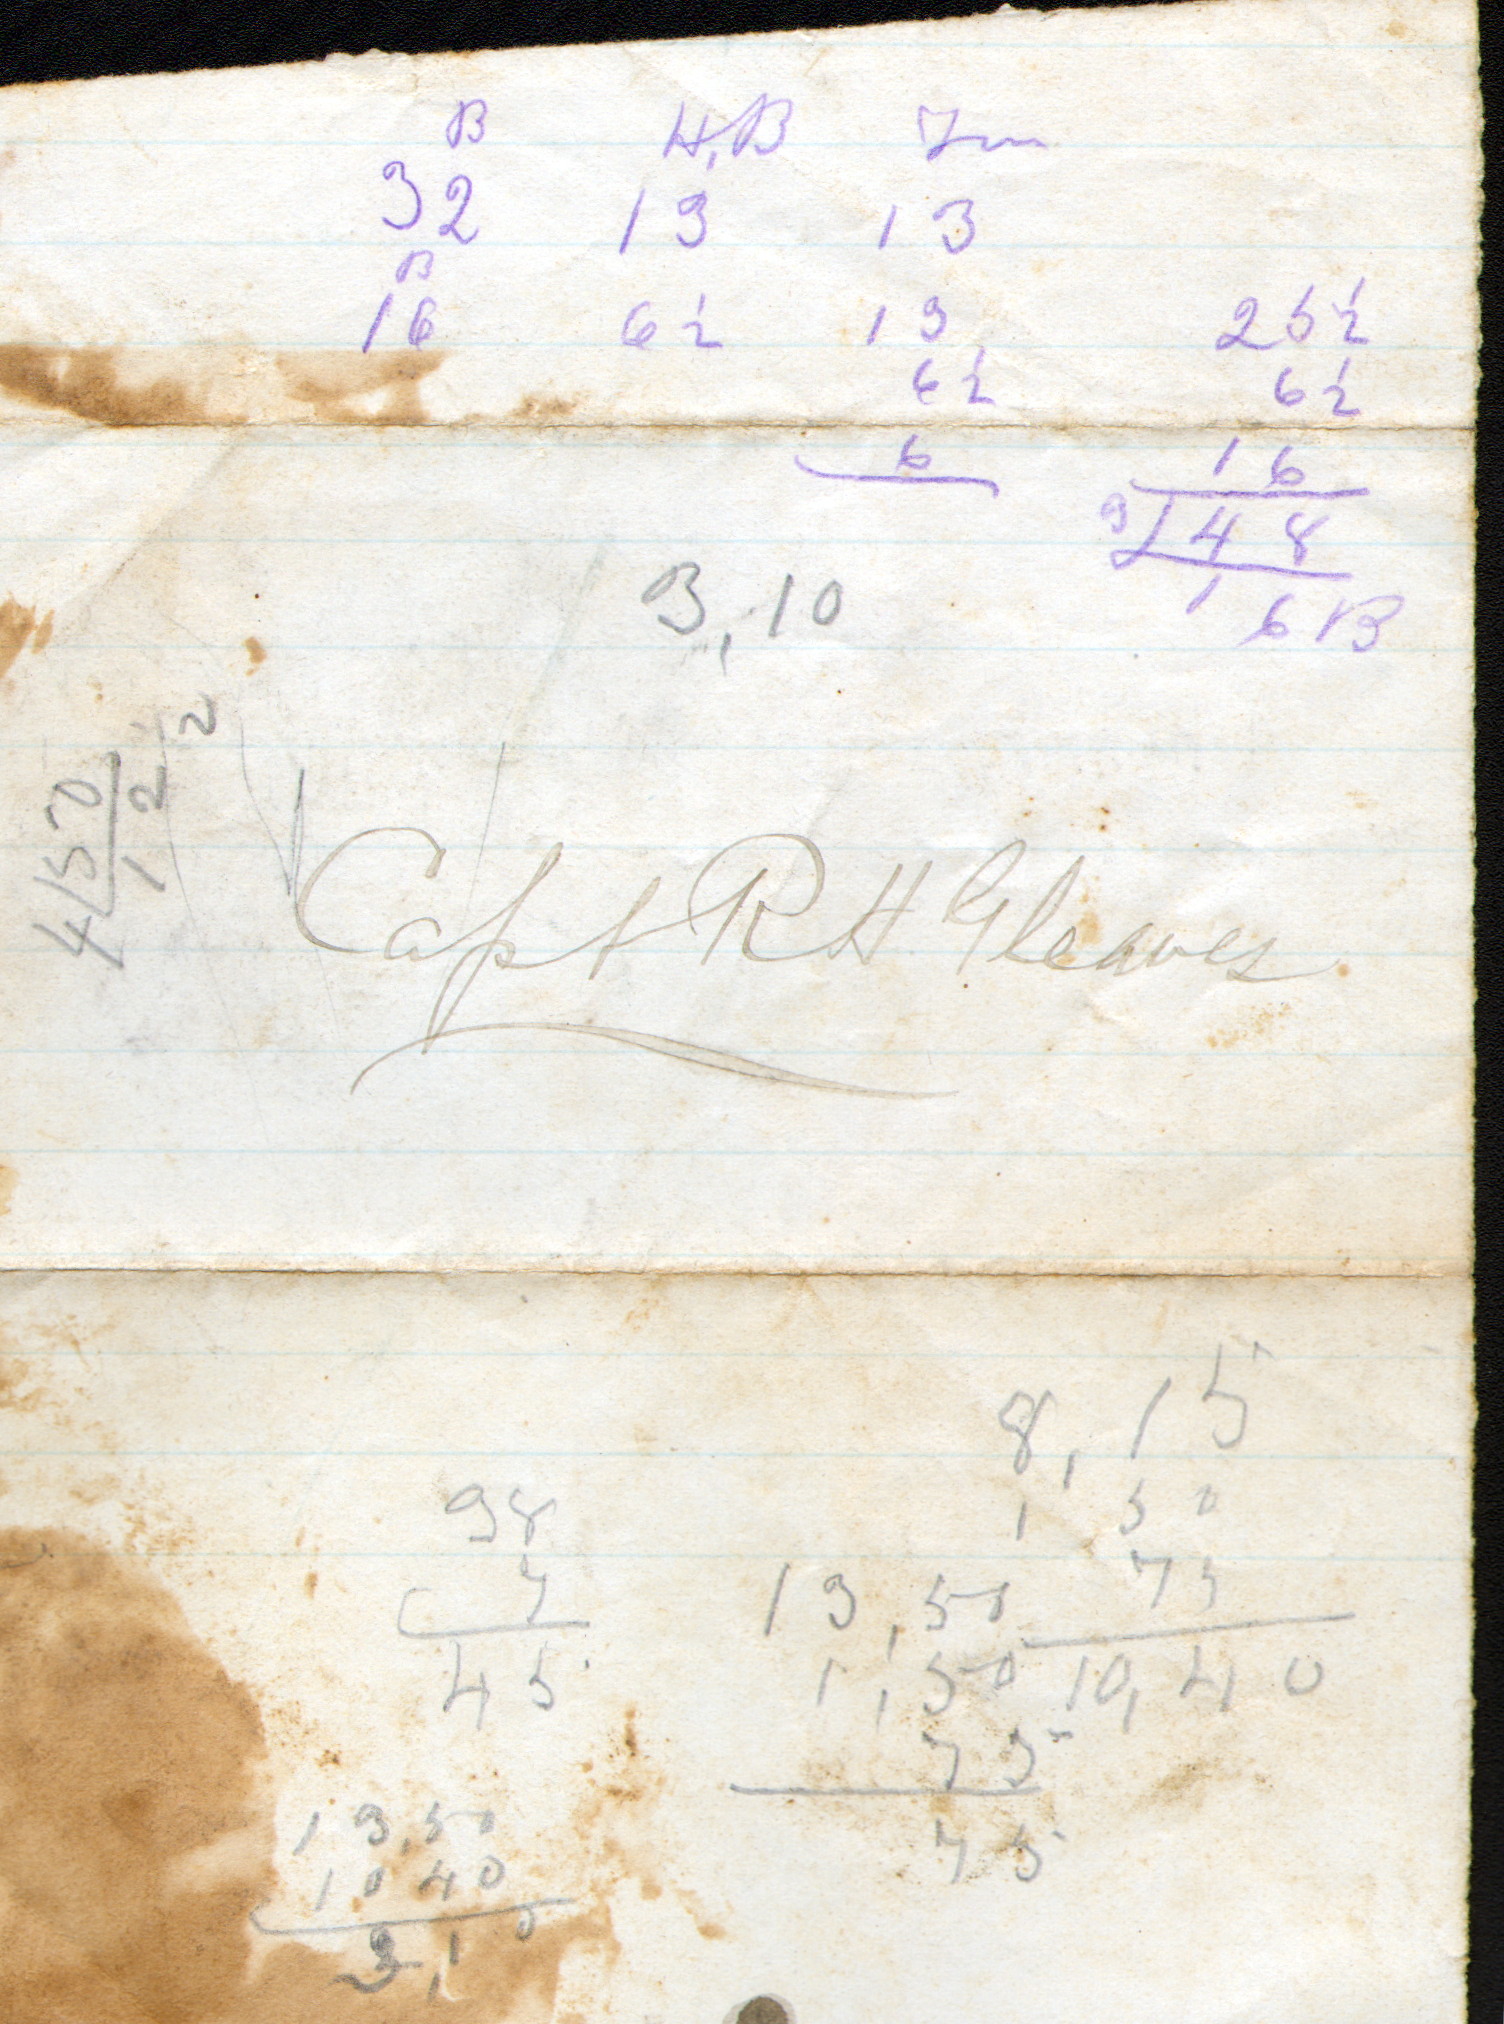 B H,B
32 13 13
B
16 6½ 13 25½
6½ 6½
6 16
3 48
16 B
3,10
4 50
12½
Capt R H Gleaves
8,15
1 50
75
10,40
98
45
13,50
1,50
75
75
13,50
10 40
3,10